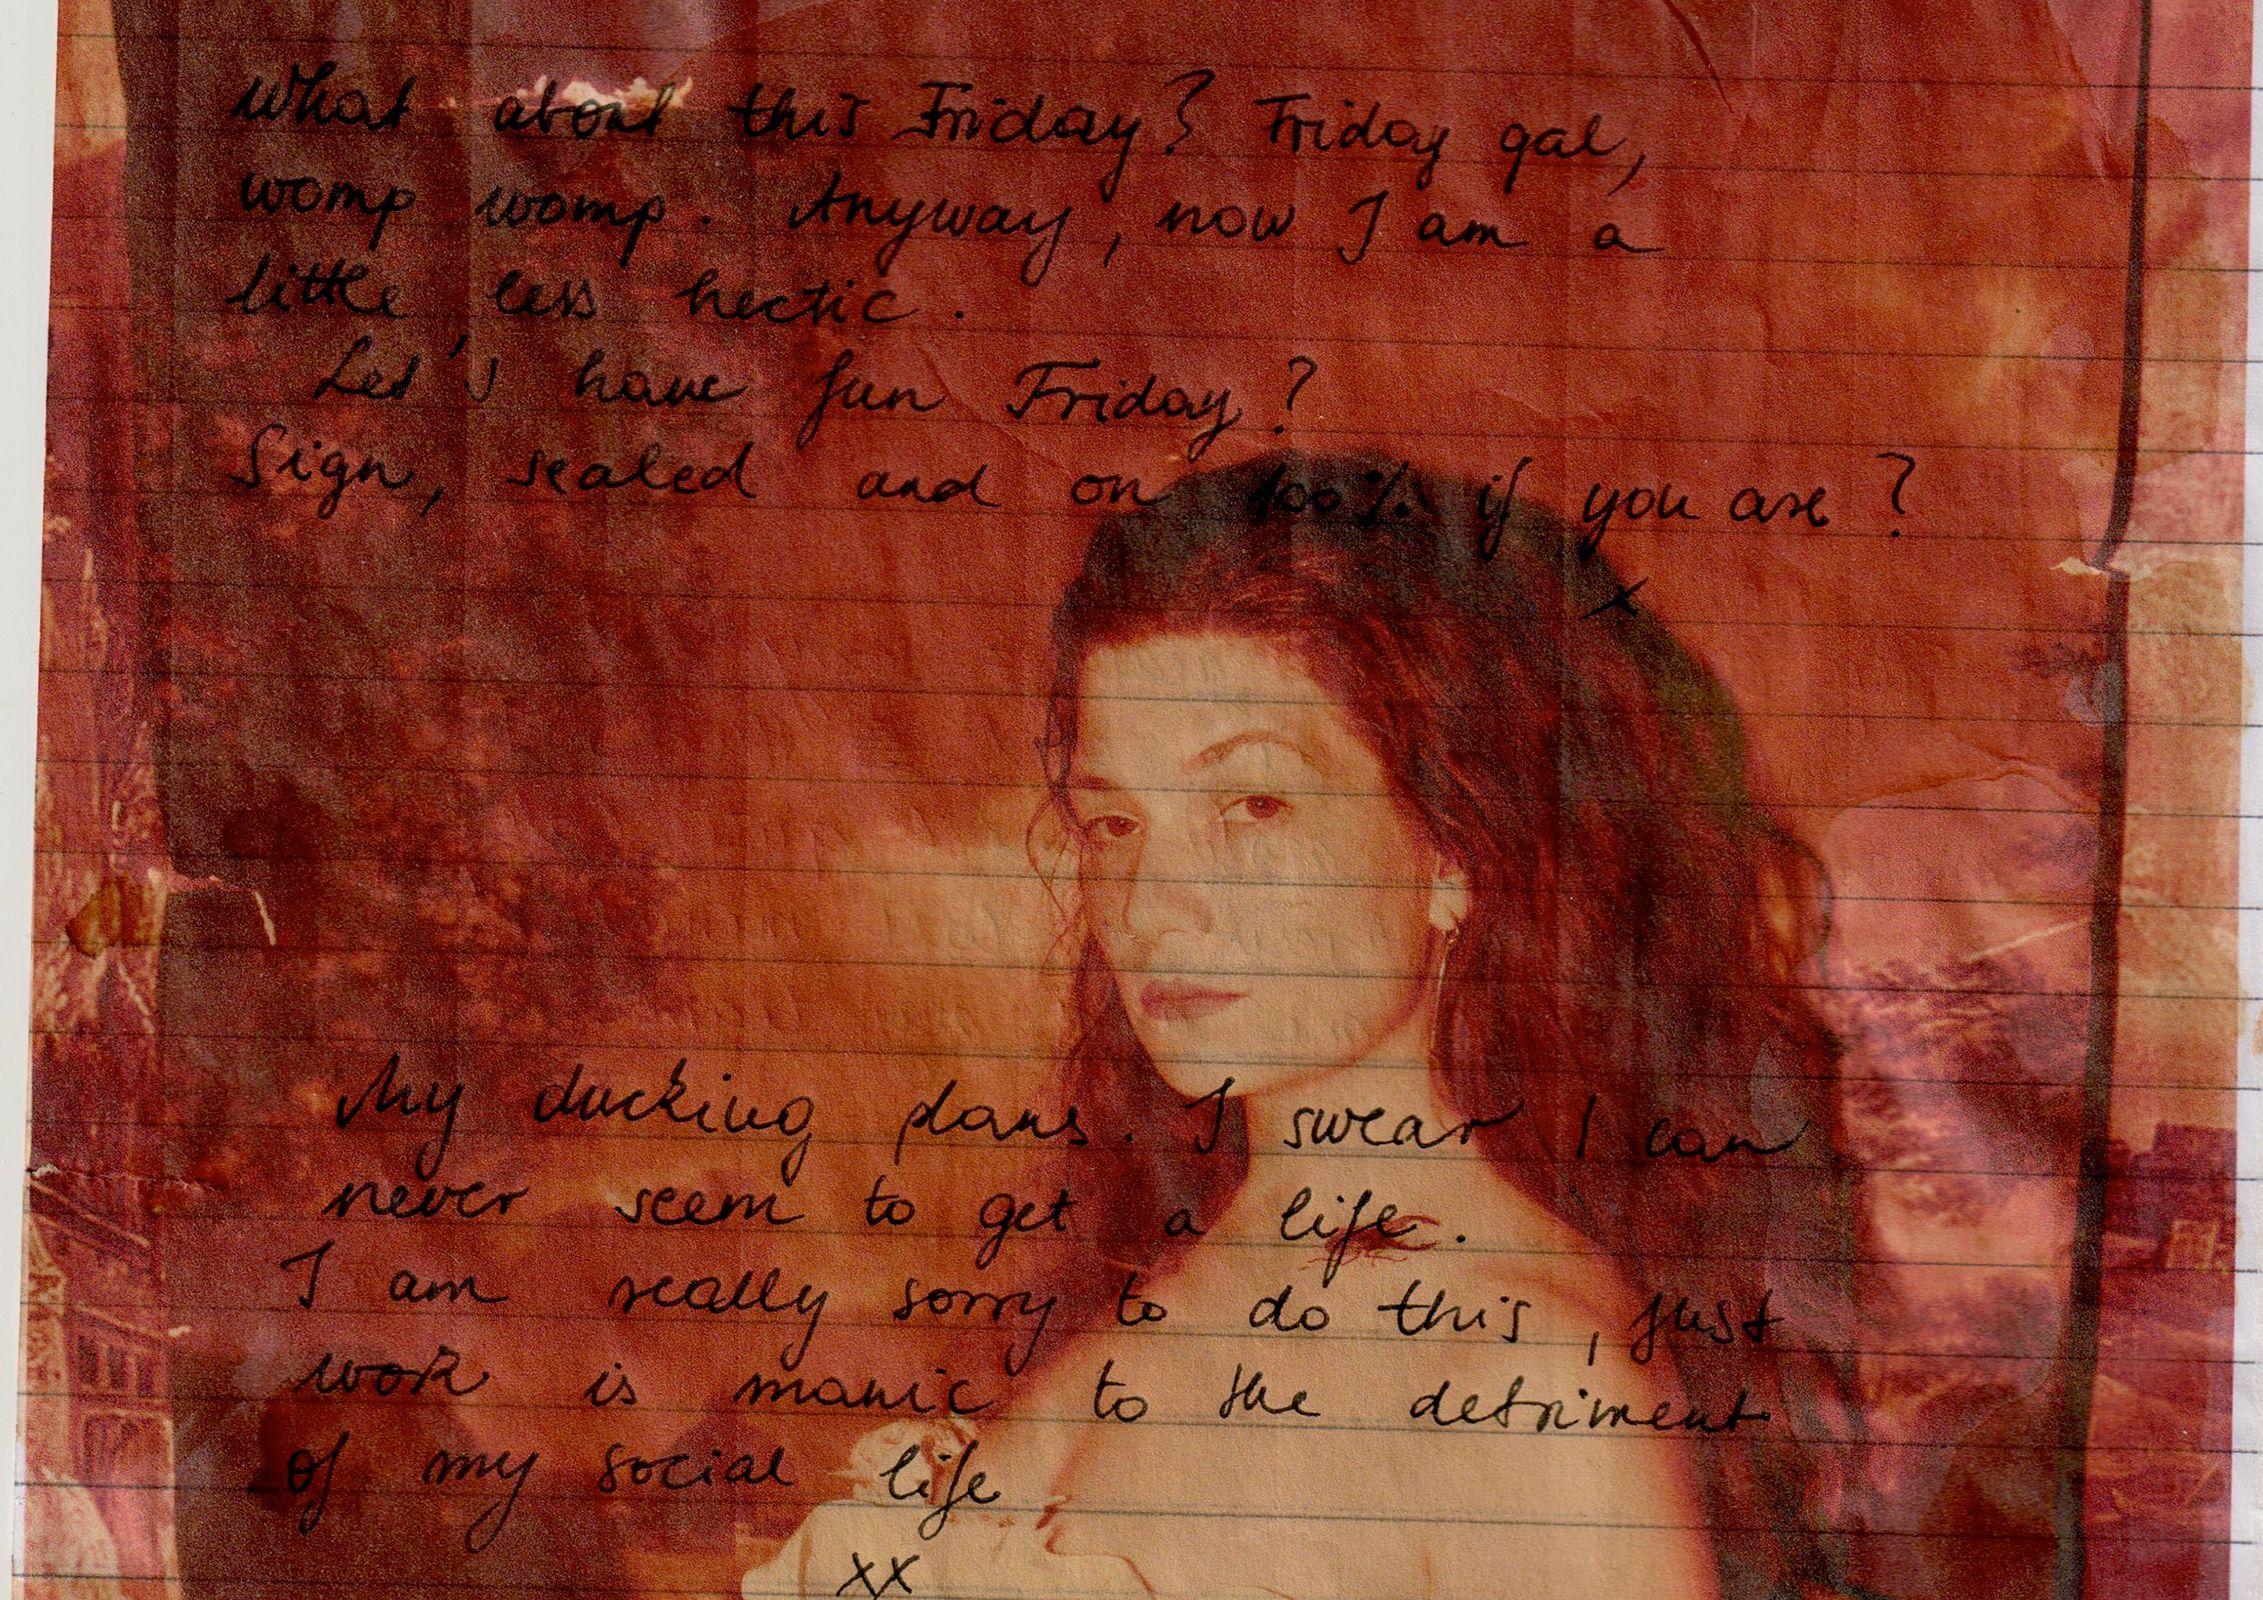 What about this Friday? Friday gal,
womp womp. Anyway, now I am a
little less hectic.
Let's have fun Friday?
Sign, sealed and on 100% if you are?
x
My ducking plans. I swear I can
never seem to get a life.
I am really sorry to do this, just
work is manic to the detriment
of my social life
xx